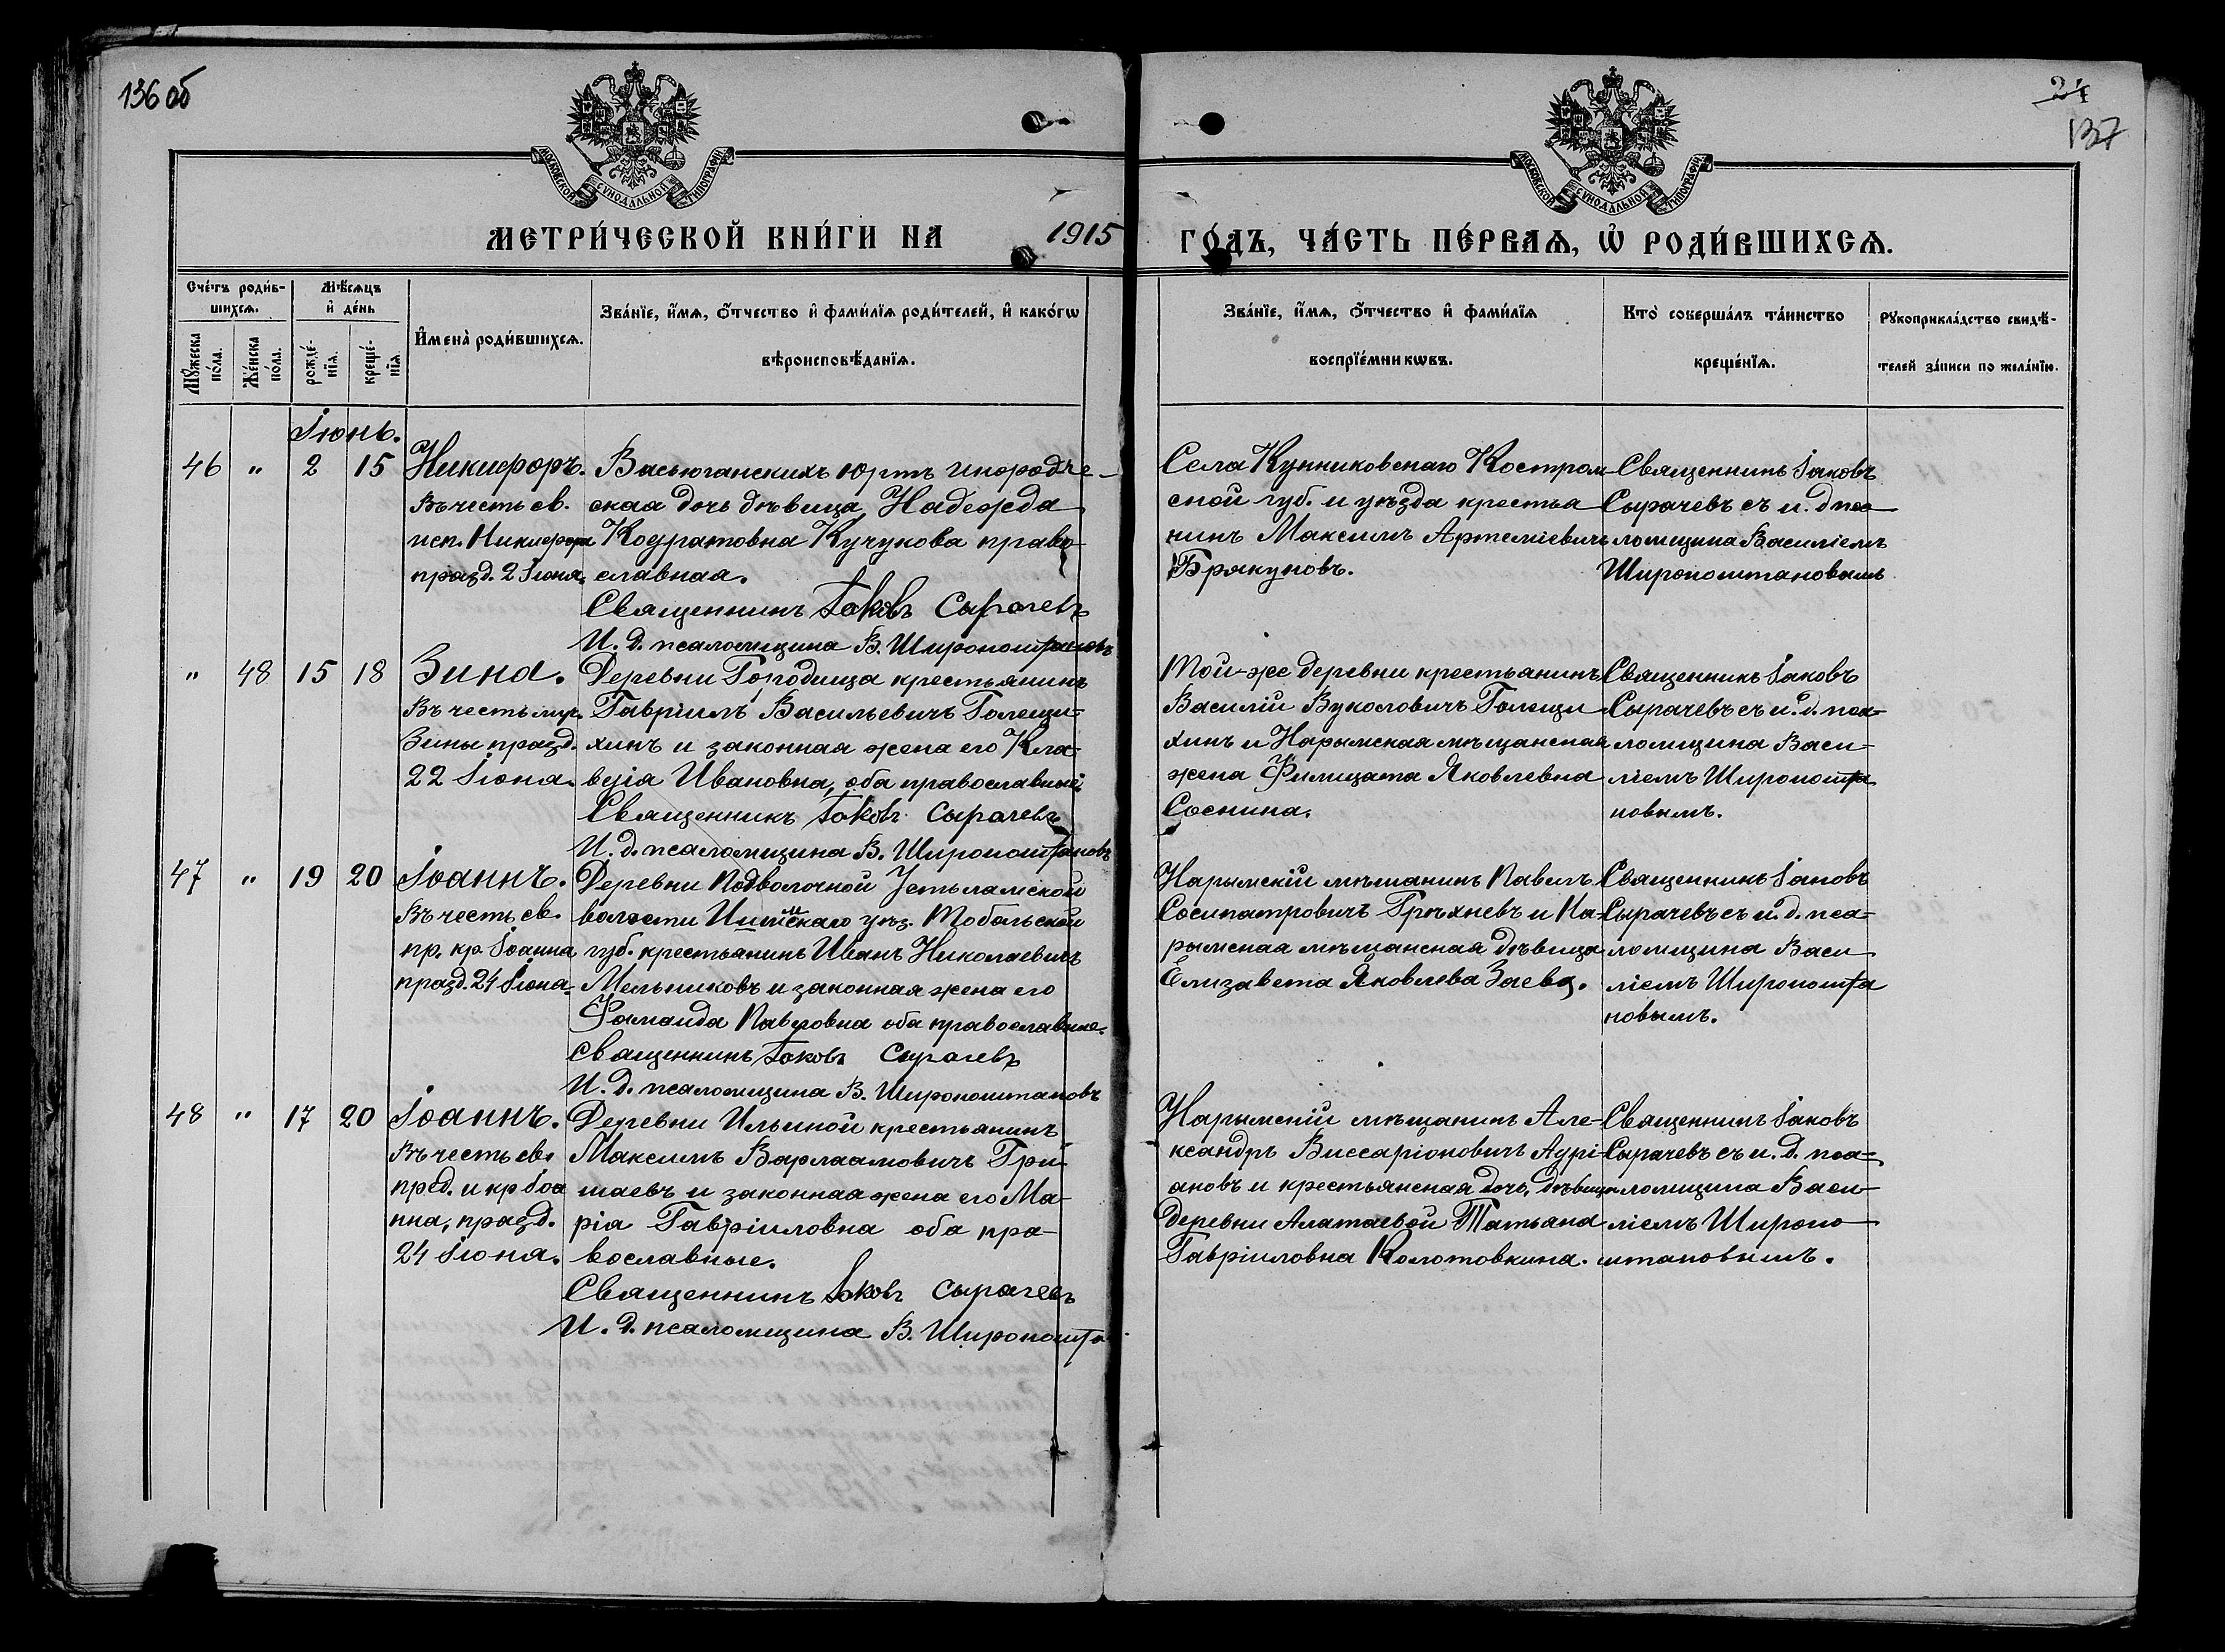 136 об
24
137
МОСКОВСКОЙ СѴНОДАЛЬНОЙ ТИПОГРАФІИ
МОСКОВСКОЙ СѴНОДАЛЬНОЙ ТИПОГРАФІИ
МЕТРИ́ЧЕСКОЙ КНИ́ГИ НА 1915 ГО́ДЪ, ЧА́СТЬ ПЕ́РВАѦ, Ѡ҆ РОДИ́ВШИХСѦ.
Сче́тъ роди́в-
шихсѧ.
Мꙋ́жеска по́ла.
Же́нска по́ла.
Мѣ́сѧцъ
и҆ де́нь
рожде́-
нїѧ.
креще́-
нїѧ
И҆мена̀ роди́вшихсѧ.
Зва́нїе, и҆́мѧ, ѻ҆́тчество и҆ фами́лїѧ роди́телей, и҆ како́гѡ
вѣроисповѣ́данїѧ.
Зва́нїе, и҆́мѧ, ѻ҆́тчество и҆ фами́лїѧ
воспрїе́мникѡвъ.
Кто̀ соверша́лъ та́инство
креще́нїѧ.
Рꙋкоприкла́дство свидѣ́-
телей за́писи по жела́нїю.
Іюнь.
46 " 2 15
Никифоръ.
Въ честь св.
исп. Никифора
празд. 2 Іюня.
Васьюганскихъ юртъ инородче-
ская дочь дѣвица Надежда
Кодратовна Кучукова право-
славная.
Священникъ Іаковъ Сырачевъ
И. д. псаломщика В. Широкоштановъ
Села Кунниковскаго Костром
ской губ. и уѣзда крестья
нинъ Максимъ Артеміевичъ
Брякуновъ.
Священникъ Іаковъ
Сырачевъ съ и. д пса
ломщика Василіемъ
Широкоштановымъ
" 48 15 18
Зина.
Въ честь муч.
Зины празд.
22 Іюня.
Деревни Городища крестьянинъ
Гавріилъ Васильевичъ Голещи-
хинъ и законная жена его Кла-
вдія Ивановна, оба православные
Священникъ Іаковъ Сырачевъ
И. д. псаломщика В. Широкоштановъ
Той-же деревни крестьянинъ
Василій Вуколовичъ Голещи-
хинъ и Нарымская мѣщанская
жена Филицата Яковлевна
Соснина.
Священникъ Іаковъ
Сырачевъ съ и. д. пса-
ломщика Васи-
ліемъ Широкошта
новымъ.
47 " 19 20
Іоаннъ.
Въ честь св.
пр. кр. Іоанна
празд. 24 Іюня.
Деревни Подволочной Устьламской
волости Ишимскаго уѣз. Тобольской
губ. крестьянинъ Иванъ Николаевичъ
Мельниковъ и законная жена его
Фамаида Павловна оба православные.
Священникъ Іаковъ Сырачевъ
И. д. псаломщика В. Широкоштановъ
Нарымскій мѣщанинъ Павелъ
Сосипатровичъ Грѣхневъ и На-
рымская мѣщанская дѣвица
Елизавета Яковлева Заева.
Священникъ Іаковъ
Сырачевъ съ и. д. пса-
ломщика Васи
ліемъ Широкошта
новымъ.
48 " 17 20
Іоаннъ.
Въ честь св.
пред. и кр Іоа
нна, празд.
24 Іюня.
Деревни Ильиной крестьянинъ
Максимъ Варлаамовичъ Гри-
шаевъ и законная жена его Ма-
рія Гавріиловна оба пра-
вославные.
Священникъ Іаковъ Сырачевъ
И. д. псаломщика В. Широкошта
Нарымскій мѣщанинъ Але-
ксандръ Виссаріоновичъ Аурі-
ановъ и крестьянская дочь, дѣвица
деревни Алатаевой Татьяна
Гавріиловна Колотовкина.
Священникъ Іаковъ
Сырачевъ съ и. д. пса-
ломщика Васи-
ліемъ Широко-
штановымъ.